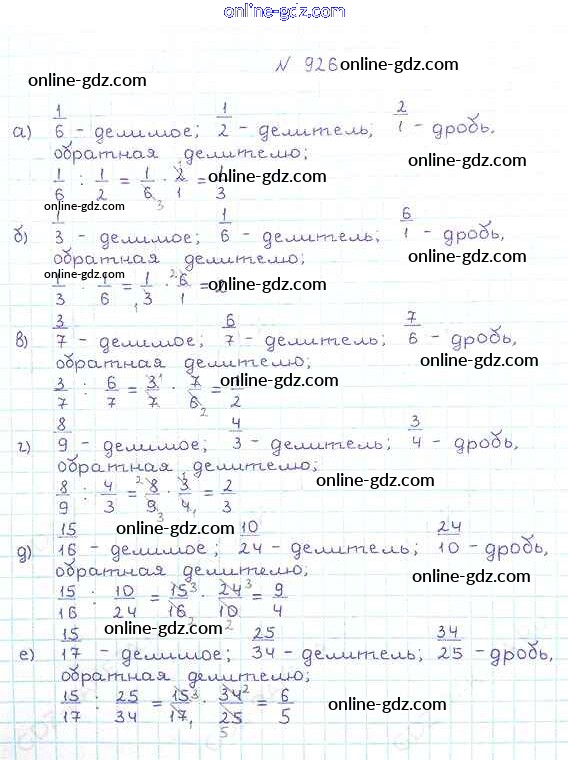 online-gdz.com
N 926
online-gdz.com
online-gdz.com
а) 1/6 - делимое; 1/2 - делитель; 2/1 - дробь,
обратная делителю;
online-gdz.com
1/6 : 1/2 = 1/6 · 2/1 = 1/3
online-gdz.com
online-gdz.com
б) 1/3 - делимое; 1/6 - делитель; 6/1 - дробь,
обратная делителю;
online-gdz.com
online-gdz.com
1/3 : 1/6 = 1/3 · 6/1 = 2
online-gdz.com
в) 3/7 - делимое; 6/7 - делитель; 7/6 - дробь,
обратная делителю;
online-gdz.com
3/7 : 6/7 = 3/7 · 7/6 = 1/2
online-gdz.com
online-gdz.com
г) 8/9 - делимое; 4/3 - делитель; 3/4 - дробь,
обратная делителю;
online-gdz.com
8/9 : 4/3 = 8/9 · 3/4 = 2/3
online-gdz.com
online-gdz.com
д) 15/16 - делимое; 10/24 - делитель; 24/10 - дробь,
обратная делителю;
online-gdz.com
15/16 : 10/24 = 15/16 · 24/10 = 9/4
online-gdz.com
е) 15/17 - делимое; 25/34 - делитель; 34/25 - дробь,
обратная делителю;
online-gdz.com
15/17 : 25/34 = 15/17 · 34/25 = 6/5
online-gdz.com